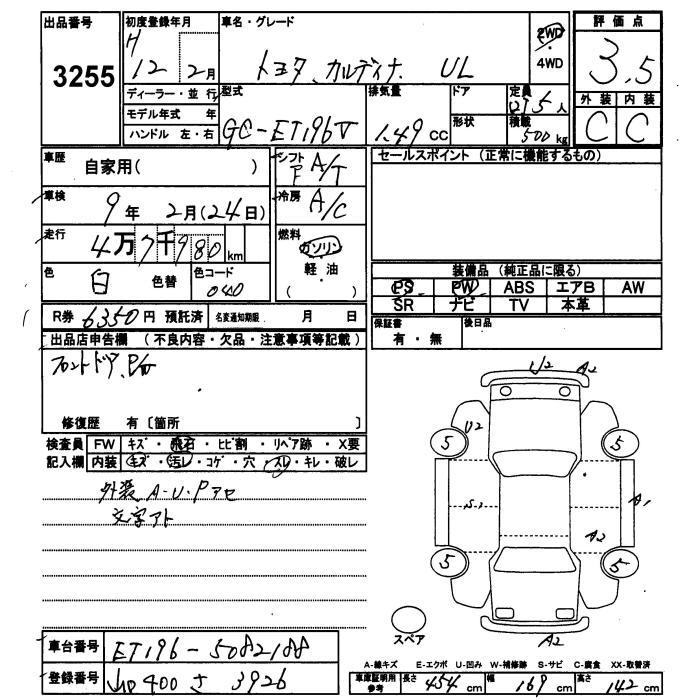 出品番号 3255
初度登録年月 H 12 2月
車名・グレード トヨタ カルディナ UL
2WD
・
4WD
評価点 3.5
外装 内装
C C
ディーラー・並行
モデル年式 年
ハンドル 左・右
型式 GC-ET196V
排気量 1.49 CC
ドア
形状
定員 2/5人
積載 500kg
車歴 自家用( )
シフト F A/T
車検 9年 2月(24日)
冷房 A/C
走行 4万7千980km
燃料 ガソリン
軽・油
( )
色 白 色替
色コード 040
セールスポイント (正常に機能するもの)
装備品 (純正品に限る)
PS PW ABS エアB AW
SR ナビ TV 本革
R券 6350円 預託済 名変通知期限 月 日
保証書 有・無
後日品
出品店申告欄 (不良内容・欠品・注意事項等記載)
フロントドア、P/W
修復歴 有〔箇所 〕
検査員 FW キズ・飛石・ヒビ割・リペア跡・X要
記入欄 内装 キズ・汚レ・コゲ・穴・スレ・キレ・破レ
外装 A-U-Pアセ
文字アト
U2 A2
U2
5 5
S1 A1
A2
5 5
スペア
A2
車台番号 ET196-5082188
登録番号 400 さ 3926
A-線キズ E-エクボ U-凹み W-補修跡 S-サビ C-腐食 XX-取替済
車庫証明用参考 長さ 454cm 幅 169cm 高さ 142cm